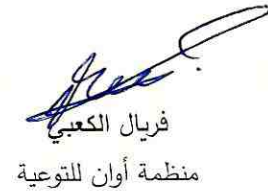 فريال الكعبي
منظمة أوان للتوعية